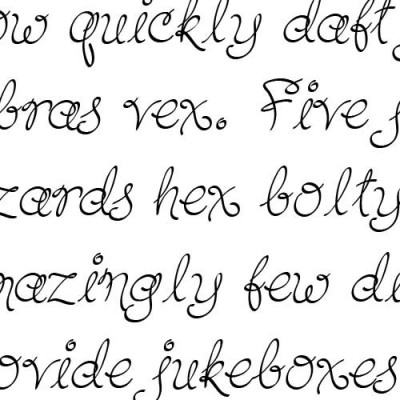 ow quickly daft
bras vex. Five j
zards hex bolty
mazingly few di
ovide jukeboxes